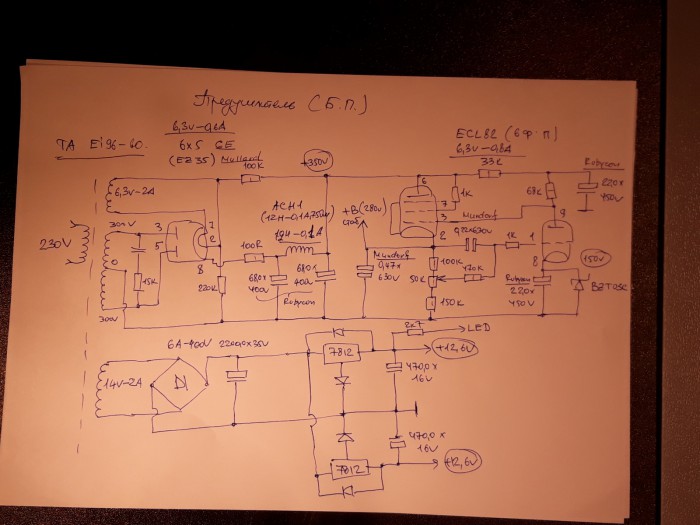 Предусилитель (Б.П.)
6,3V-0,6A
6x5 GE
(EZ35) Mullard
TA Ei96-60.
ECL82 (6Ф3П)
6,3V-0,8A
100K
+350V
33K
Rubycon
220x
450V
6,3V-2A
300V
230V
300V
3
5
1
2
8
15K
ACH1
(12H-0,1A,75Ωм)
10H-0,1A
100R
220K
680x
400V
680x
400V
Rubycon
+B(280V)
стаб
Mundorf
0,47x
630V
6
7
3
2
1K
Mundorf
0,12x630V
1K
100K
50K
470K
150K
68K
9
1
8
Rubycon
220x
450V
150V
BZT03C
14V-2A
6A-400V
2200,0x35V
7812
2K7
LED
+12,6V
470,0x
16V
470,0x
16V
7812
+12,6V